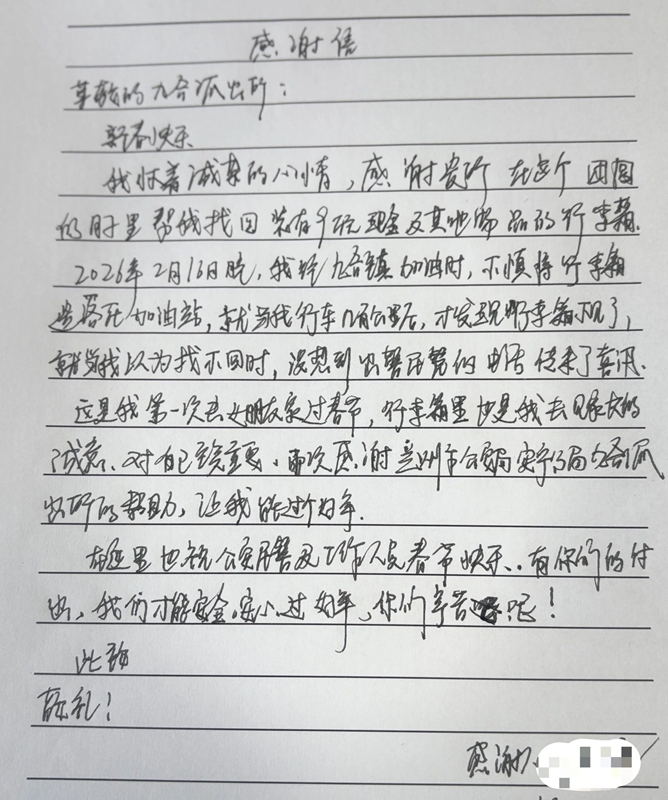 感谢信
尊敬的九合派出所：
新春快乐
我怀着诚挚的心情，感谢贵所在这个团圆
的日子里帮我找回装有9玩现金及其他物品的行李箱.
2026年2月16日晚，我经九合镇加油时，不慎将行李箱
遗落在加油站，就当我行车几百公里后，才发现行李箱不见了，
就当我以为找不回时，没想到出警民警的电话传来了喜讯.
这是我第一次去女朋友家过春节，行李箱里也是我去见家长的
诚意、对自己至关重要、再次感谢兰州市公安局安宁分局九合派
出所的帮助，让我能过个好年.
在这里也祝公安民警及工作人员春节快乐、有你们的付
出，我们才能安全.安心过好年、你们辛苦呢！
此致
敬礼！
感谢人